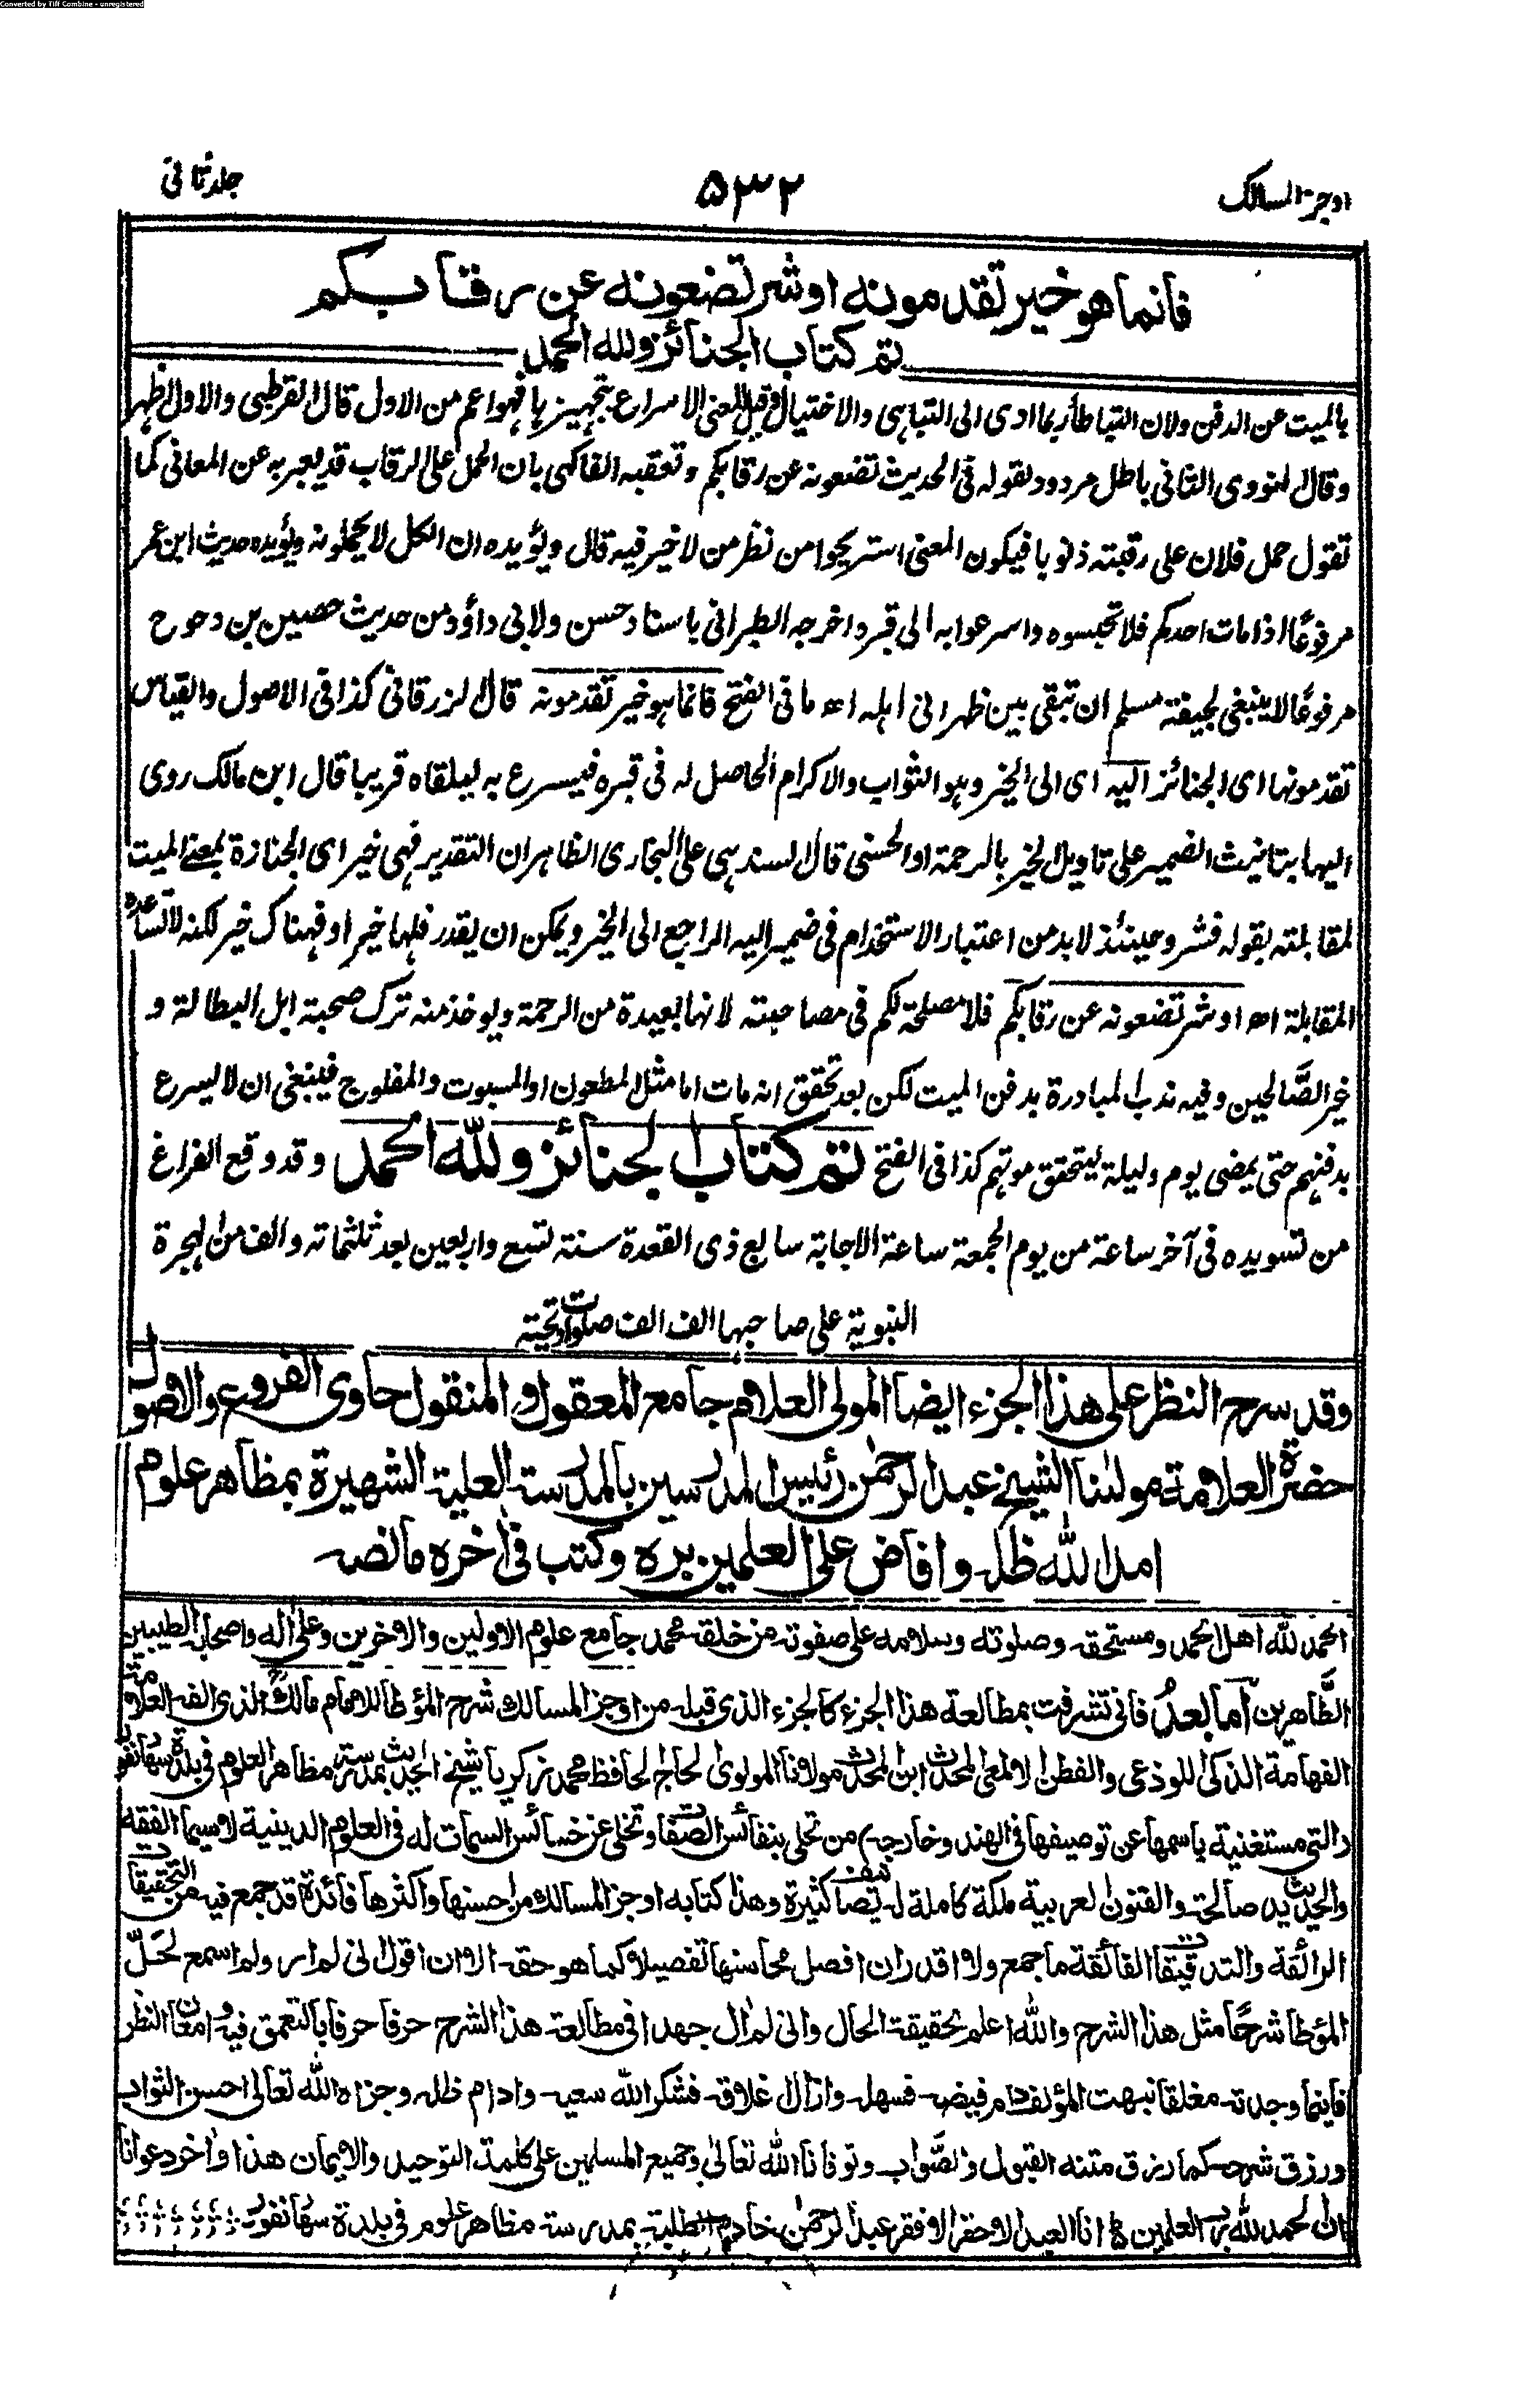 Converted by Tiff Combine - unregistered
اوجز المسالك
۵۳۲
جلد ثانی
فانما هو خير تقدمونه او شر تضعونه عن رقابكم
تم كتاب الجنائز ولله الحمد
بالميت عن الدفن ولان التباطأ ربما ادى الى التباهى والاختيال وقيل المعنى الاسراع بتجهيزها فهو اعم من الاول قال القرطبى والاول اظهر
وقال النووى الثانى باطل مردود لقوله فى الحديث تضعونه عن رقابكم وتعقبه الفاكهى بان الحمل على الرقاب قد يعبر به عن المعانى كما
تقول حمل فلان على رقبته ذنوبا فيكون المعنى استريحوا من نظر من لا خير فيه قال ويؤيده ان الكل لا يحملونه ويؤيده حديث ابن عمر
مرفوعًا اذا مات احدكم فلا تحبسوه واسرعوا به الى قبره اخرجه الطبرانى باسناد حسن ولابى داؤد من حديث حصين بن دحوح
مرفوعًا لا ينبغى لجيفة مسلم ان تبقى بين ظهرانى اهله اھ ما فى الفتح فانما هو خير تقدمونه قال الزرقانى كذا فى الاصول والقياس
تقدمونها اى الجنائز اليه اى الى الخير وهو الثواب والاكرام الحاصل له فى قبره فيسرع به ليلقاه قريبا قال ابن مالك روى
اليها بتانيث الضمير على تاويل الخير بالرحمة او الحسنى قال السندهى على البخارى الظاهر ان التقدير فهى خير اى الجنازة بمعنے الميت
لمقابلته بقوله فشر وحينئذ لا بد من اعتبار الاستخدام فى ضمير اليه الراجع الى الخير ويمكن ان يقدر فلها خير او فهناك خير لكنه لا تساعده
المقابلة اھ او شر تضعونه عن رقابكم فلا مصلحة لكم فى مصاحبته لانها بعيدة من الرحمة ويوخذ منه ترك صحبة اهل البطالة و
غير الصَّالحين وفيه ندب المبادرة بدفن الميت لكن بعد تحقق انه مات اما مثل المطعون او المسبوت والمفلوج فينبغى ان لا يسرع
بدفنهم حتى يمضى يوم وليلة ليتحقق موتهم كذا فى الفتح تم كتاب الجنائز ولله الحمد وقد وقع الفراغ
من تسويده فى آخر ساعة من يوم الجمعة ساعة الاجابة سابع ذى القعدة سنة تسع واربعين بعد ثلثمائة والف من الهجرة
النبوية على صاحبها الف الف صلوات وتحية
وقد سرح النظر على هذا الجزء ايضا المولى العلام جامع المعقول والمنقول حاوى الفروع والاصول
حضرة العلامة مولٰنا الشيخ عبد الرحمٰن رئيس المدرسين بالمدرسة العلية الشهيرة بمظاهر علوم
امد الله ظله وافاض على العلمين بره وكتب فى اٰخره ما نصه
الحمد لله اهل الحمد ومستحقه وصلوته وسلامه على صفوته من خلقه محمد جامع علوم الاولين والاخرين وعلى اٰله واصحابه الطيبين
الطَّاهرين اما بعدُ فانى تشرفت بمطالعة هذا الجزء كالجزء الذى قبله من اوجز المسالك شرح المؤطا للامام مالكؒ الذى الفه العلامة
الفهامة الذكى اللوذعى والفطن الالمعى المحدث ابن المحدث مولانا المولوى الحاج الحافظ محمد زكريا شيخ الحديث بمدرسة مظاهر العلوم فى بلدة سهانفور
والتى مستغنية باسمها عن توصيفها فى الهند وخارجها من تحلى بنفائس الصفات وتخلى عن خسائس السمات له فى العلوم الدينية لاسيما الفقه
والحديث يد صالحة والفنون العربية ملكة كاملة له تصانيف كثيرة وهذا كتابه اوجز المسالك من احسنها واكثرها فائدة قد جمع فيه من التحقيقات
الرائقة والتدقيقات الفائقة ما جمع ولا اقدر ان افصل محاسنها تفصيلا كما هو حقه الا ان اقول انى لم ار ولم اسمع لحَلّ
المؤطا شرحًا مثل هذا الشرح والله اعلم بحقيقة الحال وانى لم اٰل جهدا فى مطالعة هذا الشرح حرفا حرفا بالتعمق فيه وامعان النظر
فاينما وجدته مغلقا نبهت المؤلف دام فيضه فسهله وازال غلاقه فشكر الله سعيه وادام ظله وجزاه الله تعالى احسن الثواب
ورزق شرحه كما رزق متنه القبول والصَّواب وتوفانا الله تعالىٰ وجميع المسلمين على كلمة التوحيد والايمان هذا واٰخر دعوانا
ان الحمد لله رب العلمين انا العبد الاحقر الافقر عبد الرحمٰن خادم الطلبة بمدرسة مظاهر علوم فى بلدة سهانفور